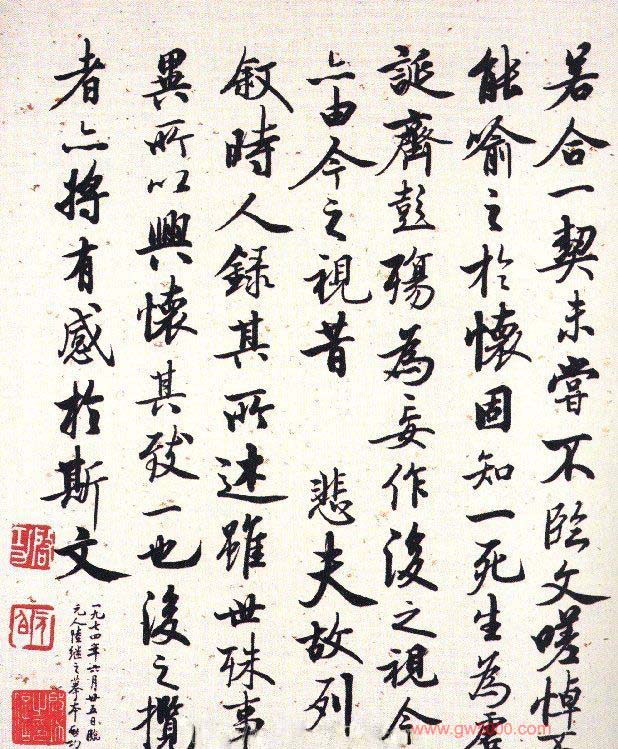 若合一契未嘗不臨文嗟悼
能喻之於懷固知一死生為虛
誕齊彭殤為妄作後之視今
亦由今之視昔 悲夫故列
敘時人錄其所述雖世殊事
異所以興懷其致一也後之攬
者亦將有感於斯文
一九七四年六月廿五日臨
元人陸繼之摹本啟功